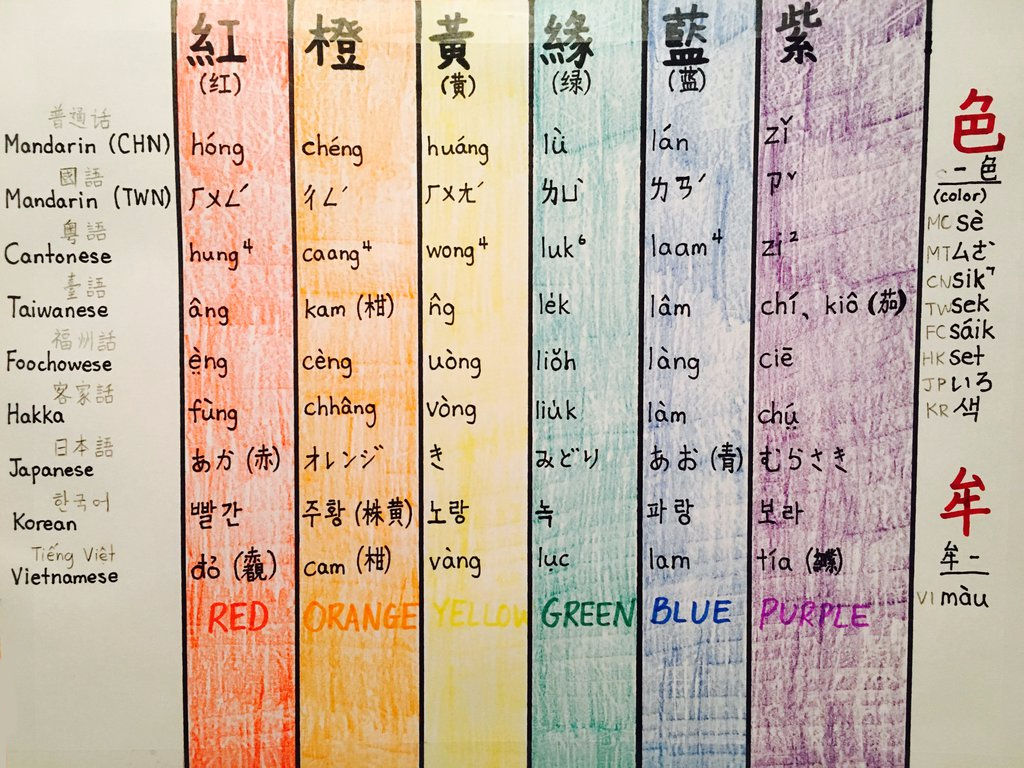 紅 橙 黃 緣 藍 紫
(红) (黄) (绿) (蓝)
普通话
Mandarin (CHN) hóng chéng huáng lǜ lán zǐ
國語
Mandarin (TWN) ㄏㄨㄥˊ ㄔㄥˊ ㄏㄨㄤˊ ㄌㄩˋ ㄌㄢˊ ㄗˇ
粵語
Cantonese hung⁴ caang⁴ wong⁴ luk⁶ laam⁴ zi²
臺語
Taiwanese âng kam (柑) n̂g le̍k lâm chí、kiô (茄)
福州話
Foochowese è̤ng cèng uòng liŏh làng ciē
客家話
Hakka fùng chhâng vòng liu̍k làm chṳ́
日本語
Japanese あか (赤) オレンジ き みどり あお (青) むらさき
한국어
Korean 빨간 주황 (株黄) 노랑 녹 파랑 보라
Tiếng Việt
Vietnamese đỏ cam (柑) vàng lục lam tía
RED ORANGE YELLOW GREEN BLUE PURPLE
色
一色
(color)
MC sè
MT ㄙㄜˋ
CN sik˥
TW sek
FC sáik
HK set
JP いろ
KR 색
牟
牟一
VI màu